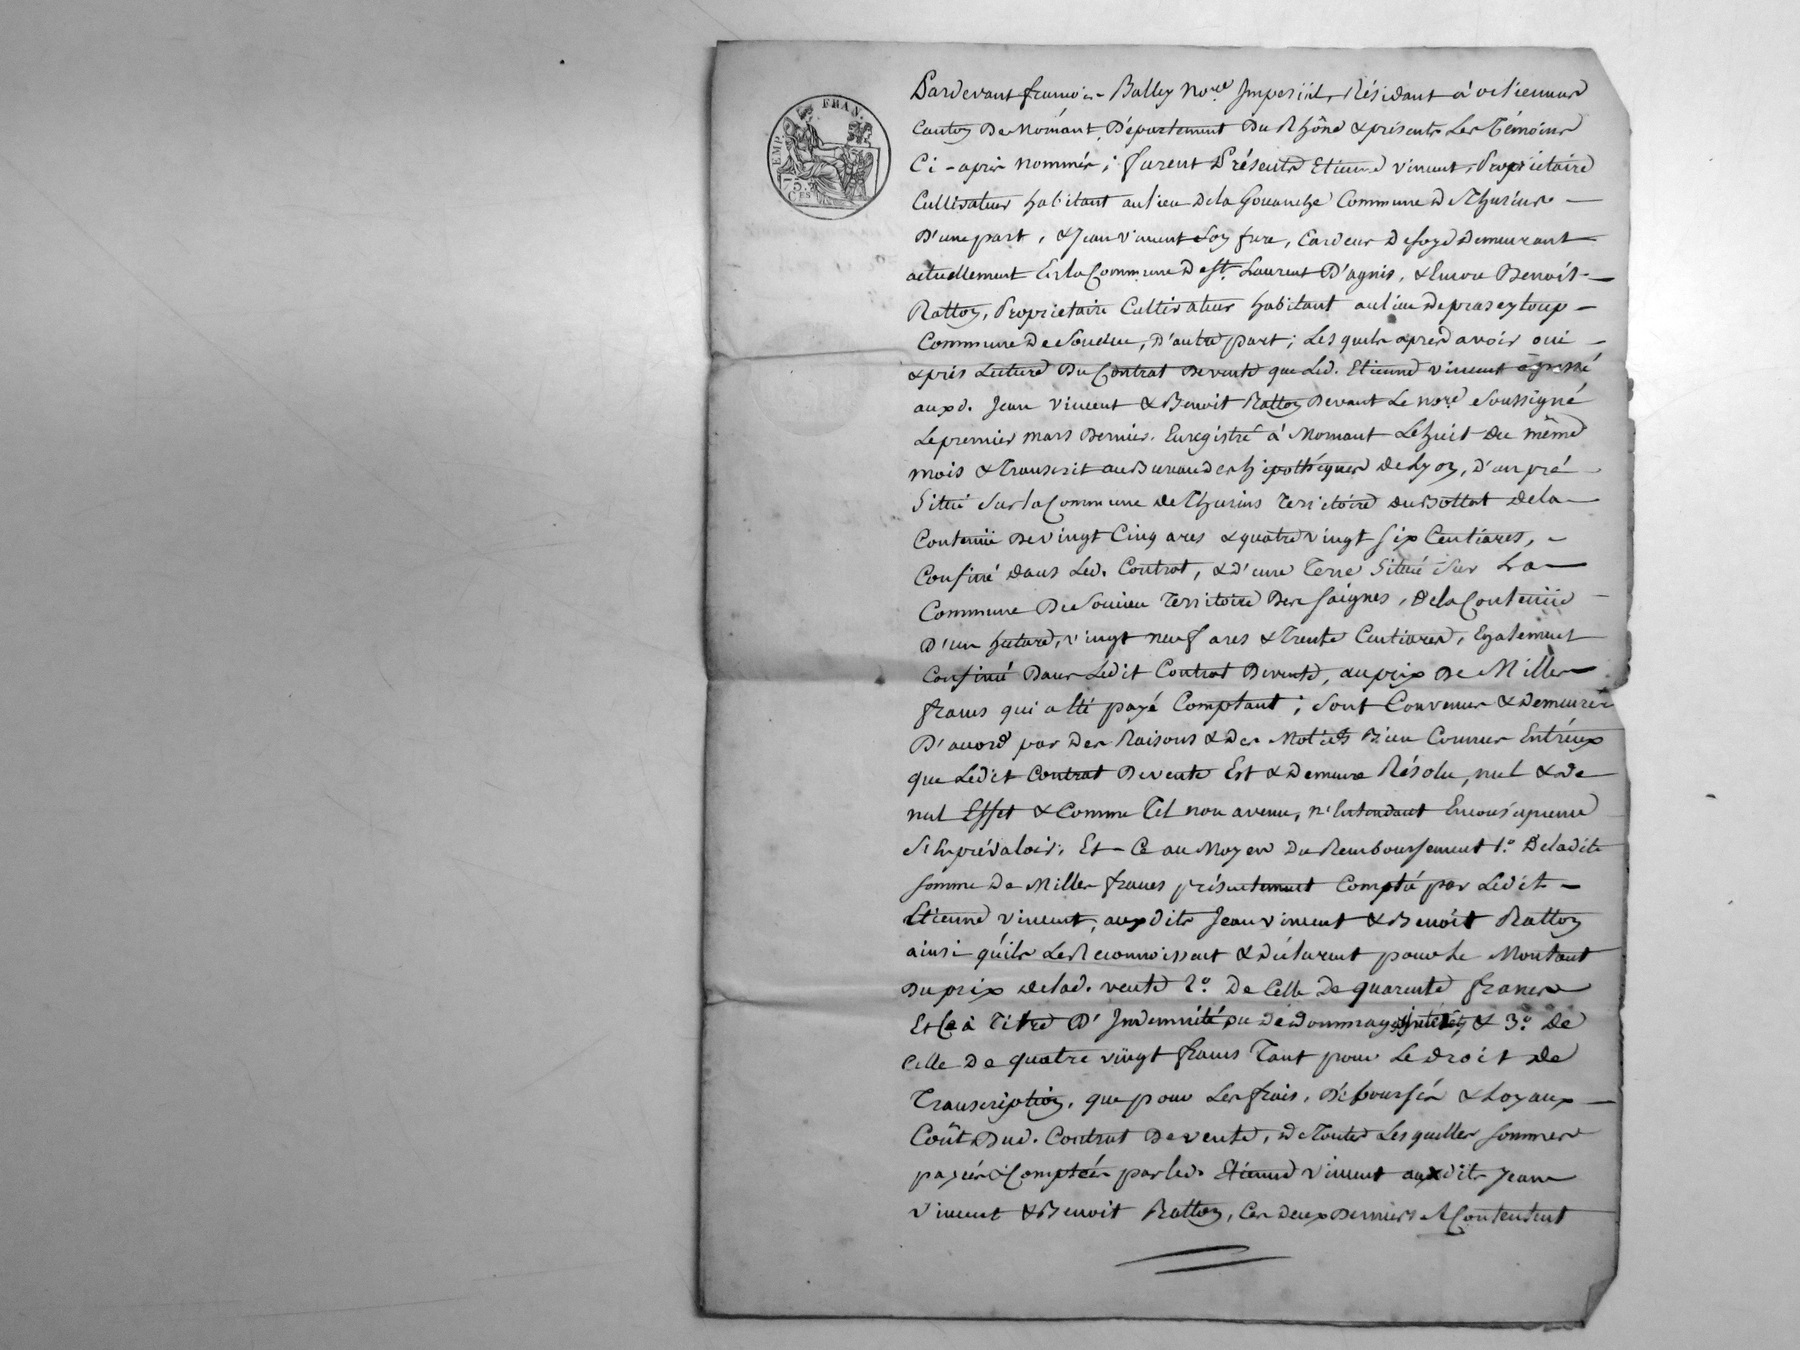 EMP. FRAN.
75.
CES
Pardevant françois Balley No.re Imperial, Résidant à orliennas
Canton De Mornant, Département Du Rhône & présents Les Témoins
Ci-après nommés ; furent Présents Etienne Vincent, Proprietaire
Cultivateur habitant au lieu de la Gouanche Commune De Thurins —
D'une part, & Jean Vincent Son frere, Cardeur De soye Demeurant
actuellement En la Commune De St. Laurent D'agnis, & Encore Benoit —
Ratton, Proprietaire Cultivateur habitant au lieu De praseyloup —
Commune De Soucieu, D'autre part ; Lesquels après avoir oui —
& pris Lecture Du Contrat De vente que Led. Etienne Vincent a passé
aux d. Jean Vincent & Benoit Ratton Devant Le no.re Soussigné
Le premier mars Dernier. Enregistré à Mornant Le huit Du même
mois & Transcrit au Bureau des hipothéques De Lyon, D'un pré
Situé Sur la Commune De Thurins Territoire Du Bottet De la —
Contenüe De vingt Cinq ares & quatre vingt Six Centiares, —
Confiné dans Led. Contrat, & D'une Terre Située Sur La —
Commune De Soucieu Territoire Des Saignes, De la Contenüe
D'un hectare, vingt neuf ares & Trente Centiares, Egalement
Confiné Dans Ledit Contrat De vente, au prix De Mille
francs qui a été payé Comptant ; Sont Convenus & Demeurés
D'accord par Des Raisons & Des Motifs Bien Connus Entr'eux
que Ledit Contrat De vente Est & Demeure Résolu, nul & de
nul Effet & Comme Tel non avenu, n'Entendant
S'En prévaloir. Et — Ce au Moyen Du Remboursement 1.° De la dite
Somme De Mille francs présentement Comptée par Ledit —
Etienne Vincent, aux dits Jean Vincent & Benoit Ratton
ainsi qu'ils Le Reconnoissent & Déclarent pour Le Montant
Du prix De lad. vente 2.° De Celle De quarente francs
Et Ce à Titre D'Indemnité ou De Dommages intérêts & 3.° De
Celle De quatre vingt francs Tant pour Le Droit De
Transcription, que pour Les frais, Déboursés & Loyaux —
Coûts Dud. Contrat De vente, De Toutes Lesquelles Sommes
payées & Comptées par led. Etienne Vincent aux dits Jean
Vincent & Benoit Ratton, Ces Deux Derniers Se Contentent